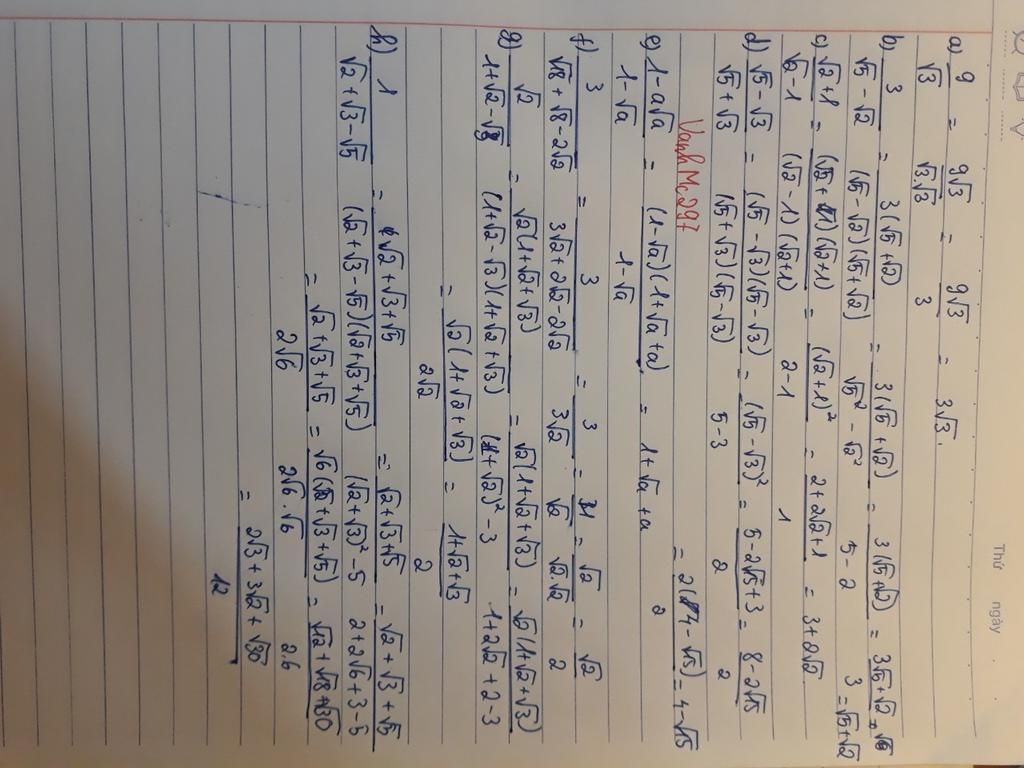 Thứ ngày
a) 9/√3 = 9√3/√3.√3 = 9√3/3 = 3√3.
b) 3/√5 - √2 = 3(√5 + √2)/(√5 - √2)(√5 + √2) = 3(√5 + √2)/√5² - √2² = 3(√5 + √2)/5 - 2 = 3√5 + √2/3
= √5 + √2
c) √2 + 1/√2 - 1 = (√2 + 1)(√2 + 1)/(√2 - 1)(√2 + 1) = (√2 + 1)²/2 - 1 = 2 + 2√2 + 1/1 = 3 + 2√2
d) √5 - √3/√5 + √3 = (√5 - √3)(√5 - √3)/(√5 + √3)(√5 - √3) = (√5 - √3)²/5 - 3 = 5 - 2√15 + 3/2 = 8 - 2√15/2
VanhMc297
= 2(4 - √15)/2 = 4 - √15
e) 1 - a√a/1 - √a = (1 - √a)(1 + √a + a)/1 - √a = 1 + √a + a
f) 3/√18 + √8 - 2√2 = 3/3√2 + 2√2 - 2√2 = 3/3√2 = 1/√2 = √2/√2.√2 = √2/2
g) √2/1 + √2 - √3 = √2(1 + √2 + √3)/(1 + √2 - √3)(1 + √2 + √3) = √2(1 + √2 + √3)/(1 + √2)² - 3 = √2(1 + √2 + √3)/1 + 2√2 + 2 - 3
= √2(1 + √2 + √3)/2√2 = 1 + √2 + √3/2
h) 1/√2 + √3 - √5 = √2 + √3 + √5/(√2 + √3 - √5)(√2 + √3 + √5) = √2 + √3 + √5/(√2 + √3)² - 5 = √2 + √3 + √5/2 + 2√6 + 3 - 5
= √2 + √3 + √5/2√6 = √6(√2 + √3 + √5)/2√6.√6 = √12 + √18 + √30/2.6
= 2√3 + 3√2 + √30/12